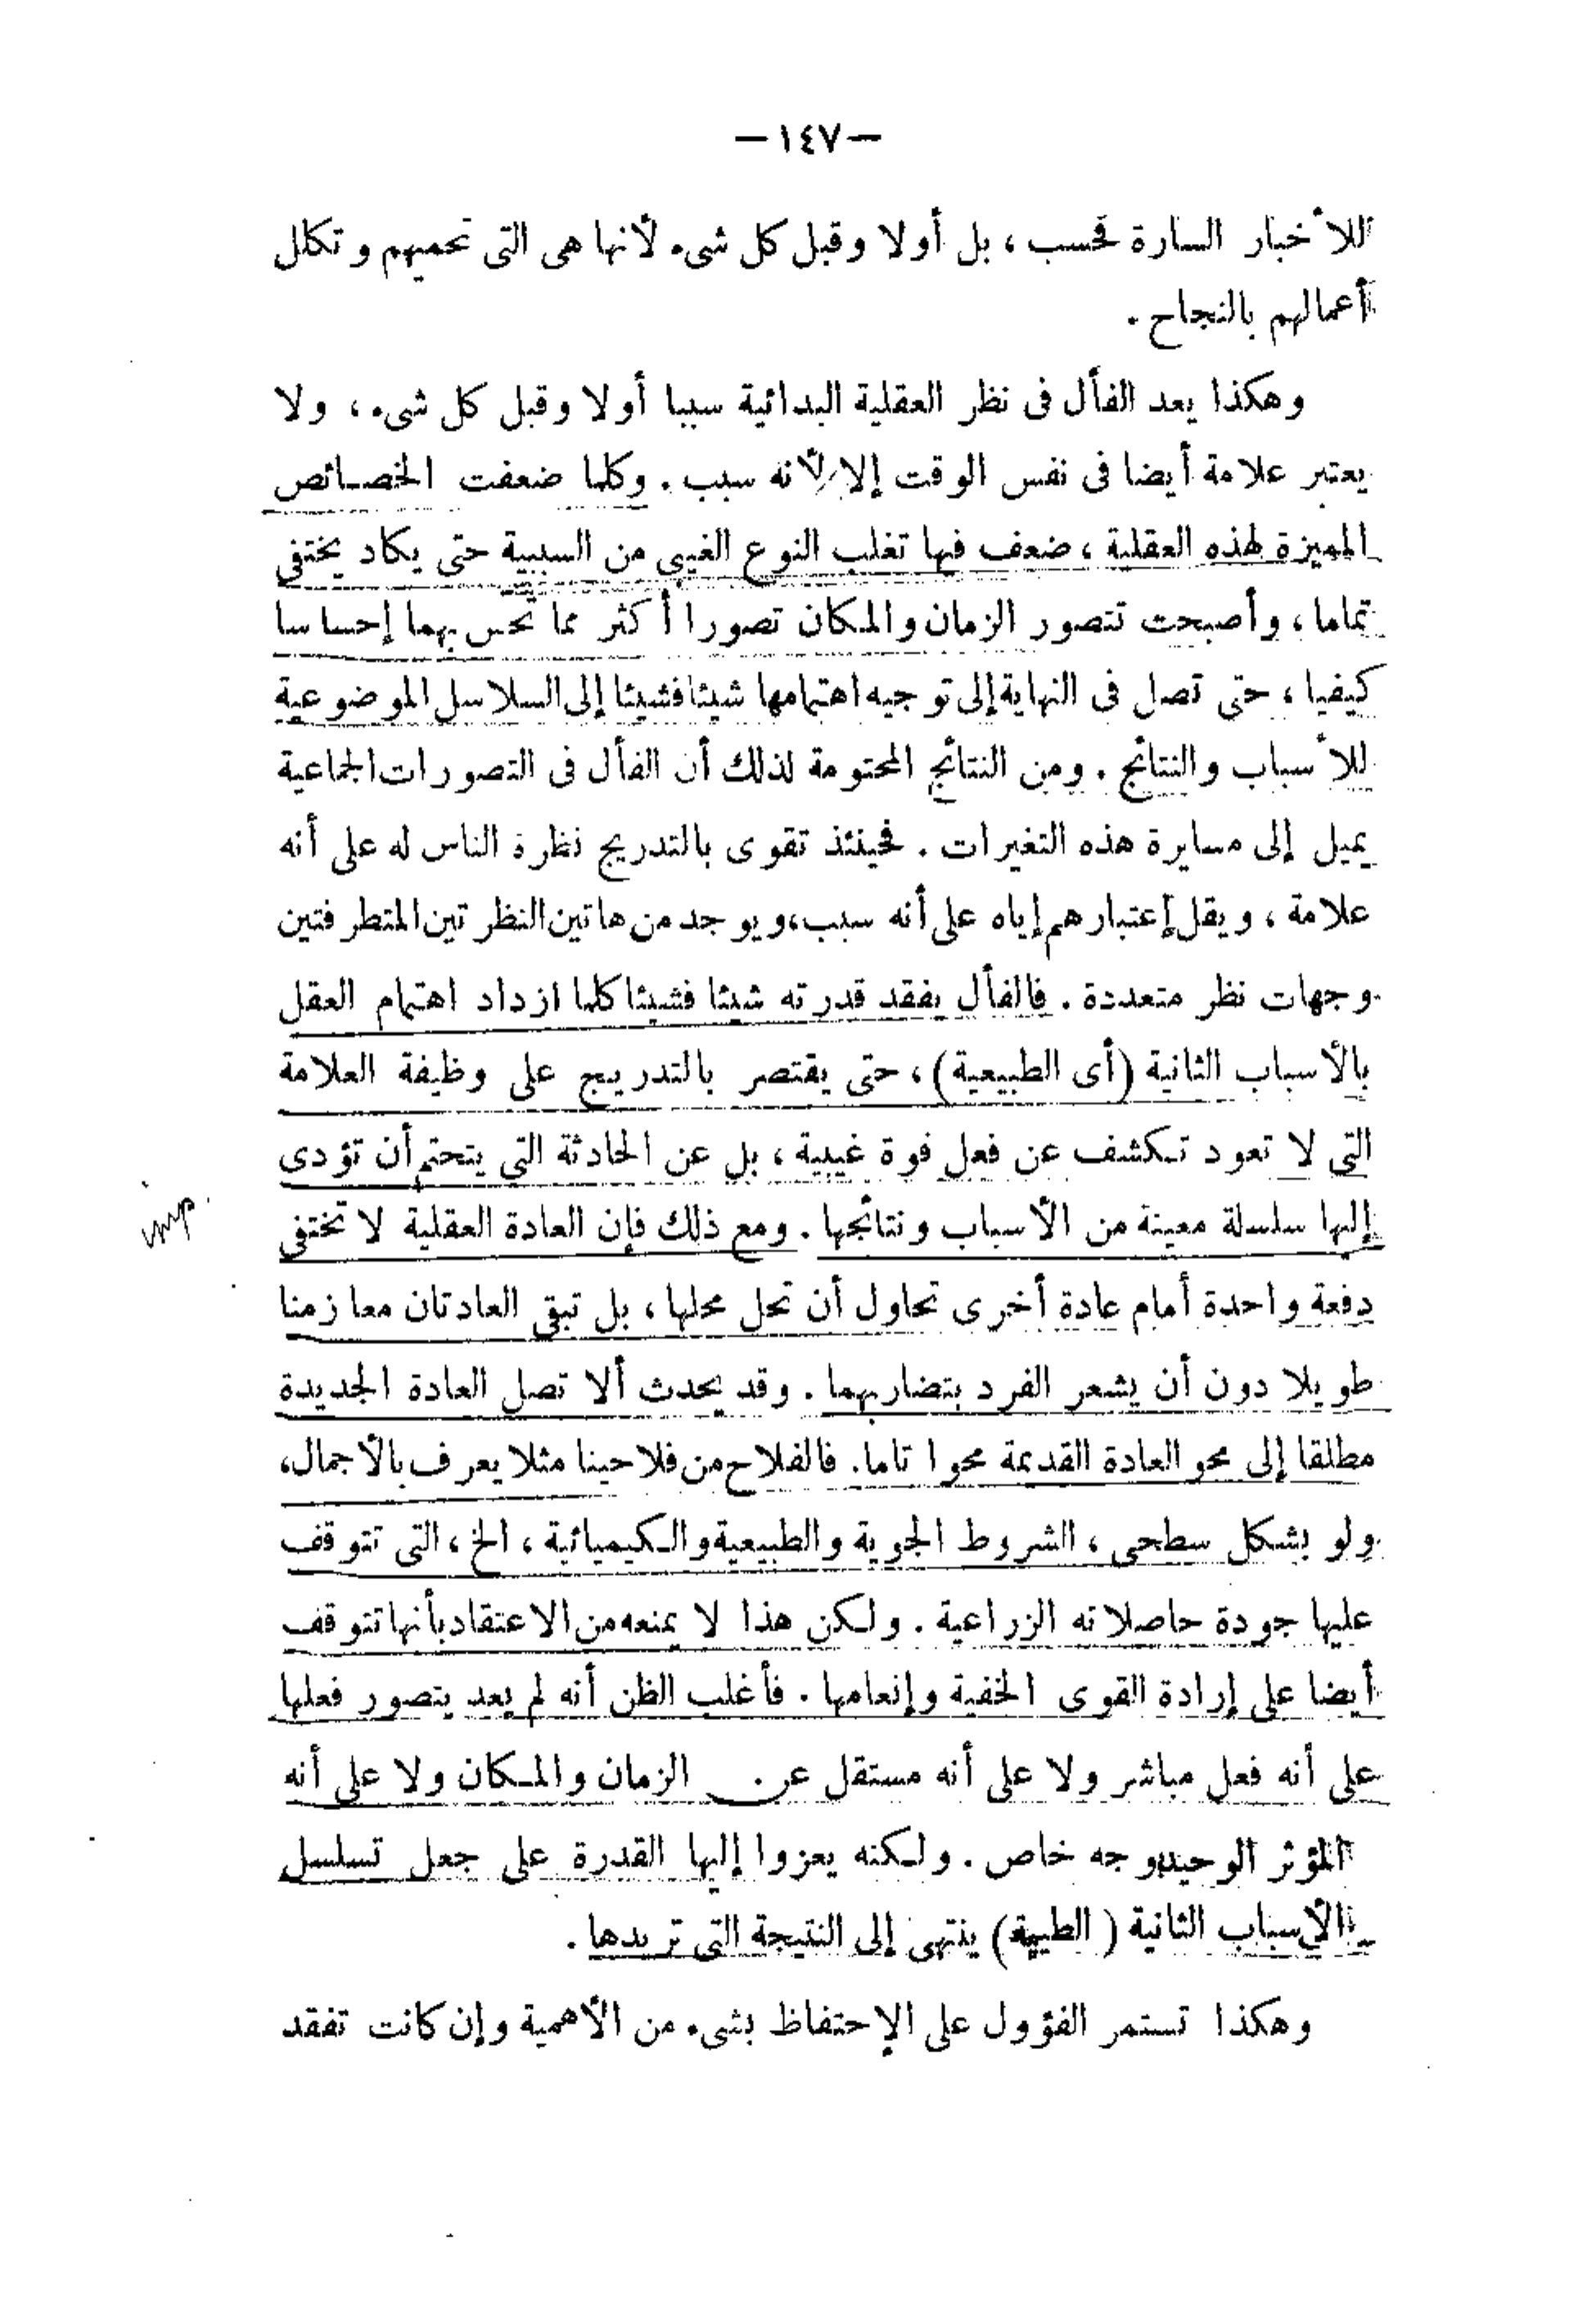 — ١٤٧ —
للأخبار السارة فحسب ، بل أولا وقبل كل شىء لأنها هى التى تحميهم وتكلل
أعمالهم بالنجاح .
وهكذا يعد الفأل فى نظر العقلية البدائية سببا أولا وقبل كل شىء ، ولا
يعتبر علامة أيضا فى نفس الوقت إلا لأنه سبب . وكلما ضعفت الخصائص
المميزة لهذه العقلية ، ضعف فيها تغلب النوع الغيبى من السببية حتى يكاد يختفى
تماما ، وأصبحت تتصور الزمان والمكان تصورا أكثر مما تحس بهما إحساسا
كيفيا ، حتى تصل فى النهاية إلى توجيه اهتمامها شيئا فشيئا إلى السلاسل الموضوعية
للأسباب والنتائج . ومن النتائج المحتومة لذلك أن الفأل فى التصورات الجماعية
يميل إلى مسايرة هذه التغيرات . فحينئذ تقوى بالتدريج نظرة الناس له على أنه
علامة ، ويقل إعتبارهم إياه على أنه سبب ، ويوجد من هاتين النظرتين المتطرفتين
وجهات نظر متعددة . فالفأل يفقد قدرته شيئا فشيئا كلما ازداد اهتمام العقل
بالأسباب الثانية (أى الطبيعية) ، حتى يقتصر بالتدريج على وظيفة العلامة
التى لا تعود تكشف عن فعل قوة غيبية ، بل عن الحادثة التى يتحتم أن تؤدى
إليها سلسلة معينة من الأسباب ونتائجها . ومع ذلك فإن العادة العقلية لا تختفى
imp.
دفعة واحدة أمام عادة أخرى تحاول أن تحل محلها ، بل تبقى العادتان معا زمنا
طويلا دون أن يشعر الفرد بتضاربهما . وقد يحدث ألا تصل العادة الجديدة
مطلقا إلى محو العادة القديمة محوا تاما . فالفلاح من فلاحينا مثلا يعرف بالأجمال ،
ولو بشكل سطحى ، الشروط الجوية والطبيعية والكيميائية ، الخ ، التى تتوقف
عليها جودة حاصلاته الزراعية . ولكن هذا لا يمنعه من الاعتقاد بأنها تتوقف
أيضا على إرادة القوى الخفية وإنعامها . فأغلب الظن أنه لم يعد يتصور فعلها
على أنه فعل مباشر ولا على أنه مستقل عن الزمان والمكان ولا على أنه
المؤثر الوحيد بوجه خاص . ولكنه يعزوا إليها القدرة على جعل تسلسل
الأسباب الثانية ( الطبية) ينتهى إلى النتيجة التى تريدها .
وهكذا تستمر الفؤول على الإحتفاظ بشىء من الأهمية وإن كانت تفقد